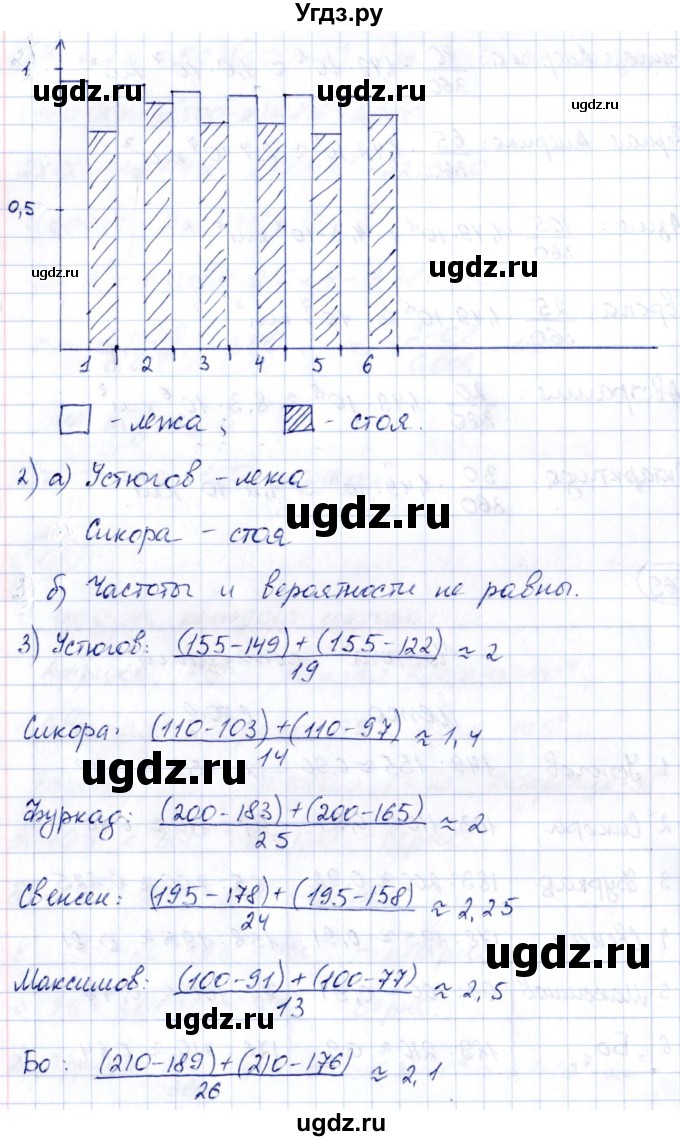 Угдз.ру
1
ugdz.ru ugdz.ru ugdz.ru
0,5
ugdz.ru ugdz.ru
1 2 3 4 5 6
- лежа; - стоя.
2) а) Устюгов - лежа
ugdz.ru
Сикора - стоя
б) Частоты и вероятности не равны.
3) Устюгов: (155-149)+(155-122)/19 ≈ 2
Сикора: (110-103)+(110-97)/14 ≈ 1,4
ugdz.ru
Фуркад: (200-183)+(200-165)/25 ≈ 2
Свенсен: (195-178)+(195-158)/24 ≈ 2,25
ugdz.ru
Максимов: (100-91)+(100-77)/13 ≈ 2,5
ugdz.ru
Бо: (210-189)+(210-176)/26 ≈ 2,1
ugdz.ru